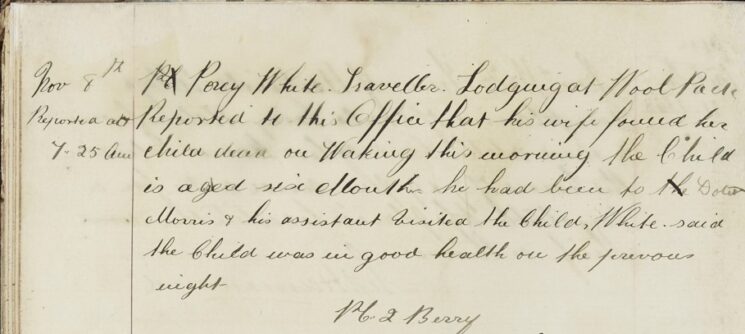 Nov 8th
Reported at
7-25 am
PC Percy White. Traveller. Lodging at Wool Pack
Reported to this Office that his wife found her
child dead on Waking this morning the Child
is aged six Months he had been to th Doctor
Morris & his assistant Visited the Child, White said
the Child was in good health on the prevous
night
P.C. 2 Berry